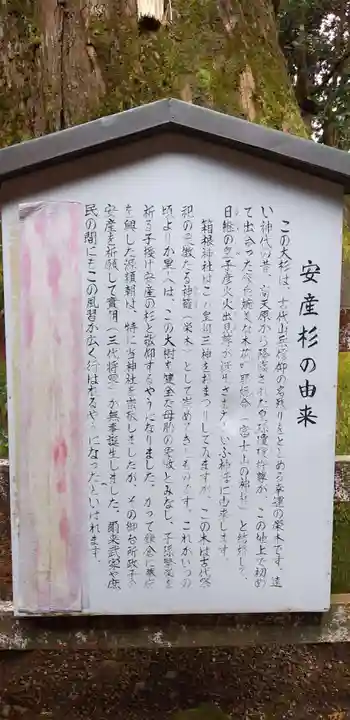 安産杉の由来
この大杉は、古代山岳信仰の名残りをとどめる幸運の栄木です。遠
い神代の昔、高天原から降臨された 瓊瓊杵尊が、この地上で初め
て出合った 木花 （富士山の神霊）と結婚し、
日継の皇子彦火火出見尊が誕生されたという神話に由来します。
箱根神社はこの皇朝三神をおまつりしてゐますが、この木は古代祭
祀の 神籬（栄木）として崇めてきたものです。これがいつの
頃よりか里人は、この大樹を健全な母胎の象徴とみなし、子孫繁栄を
祈る子授け安産の杉と敬仰するやうになりました。かつて鎌倉に幕府
を興した源頼朝は、特に当神社を崇敬しましたが、その御台所政子の
安産を祈願して実朝（三代将軍）が無事誕生しました。爾来武家や庶
民の間にもこの風習が広く行はれるやうになったといはれます。